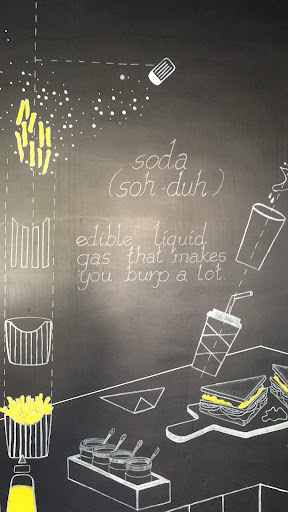 soda
(soh-duh)
edible liquid
gas that makes
you burp a lot.